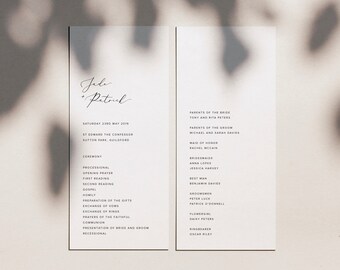 Jade
& Patrick
SATURDAY 23RD MAY 2019
ST EDWARD THE CONFESSOR
SUTTON PARK, GUILDFORD
CEREMONY
PROCESSIONAL
OPENING PRAYER
FIRST READING
SECOND READING
GOSPEL
HOMILY
PREPARATION OF THE GIFTS
EXCHANGE OF VOWS
EXCHANGE OF RINGS
PRAYERS OF THE FAITHFUL
COMMUNION
PRESENTATION OF BRIDE AND GROOM
RECESSIONAL
PARENTS OF THE BRIDE
TONY AND RITA PETERS
PARENTS OF THE GROOM
MICHAEL AND SARAH
MAID OF HONOR
RACHEL
BRIDESMAIDS
ANNA LOPEZ
JESSICA HARVEY
BEST MAN
BENJAMIN DAVIES
GROOMSMEN
PETER LUCK
PATRICK O'DONNELL
FLOWERGIRL
DAISY PETERS
RINGBEARER
OSCAR RILEY